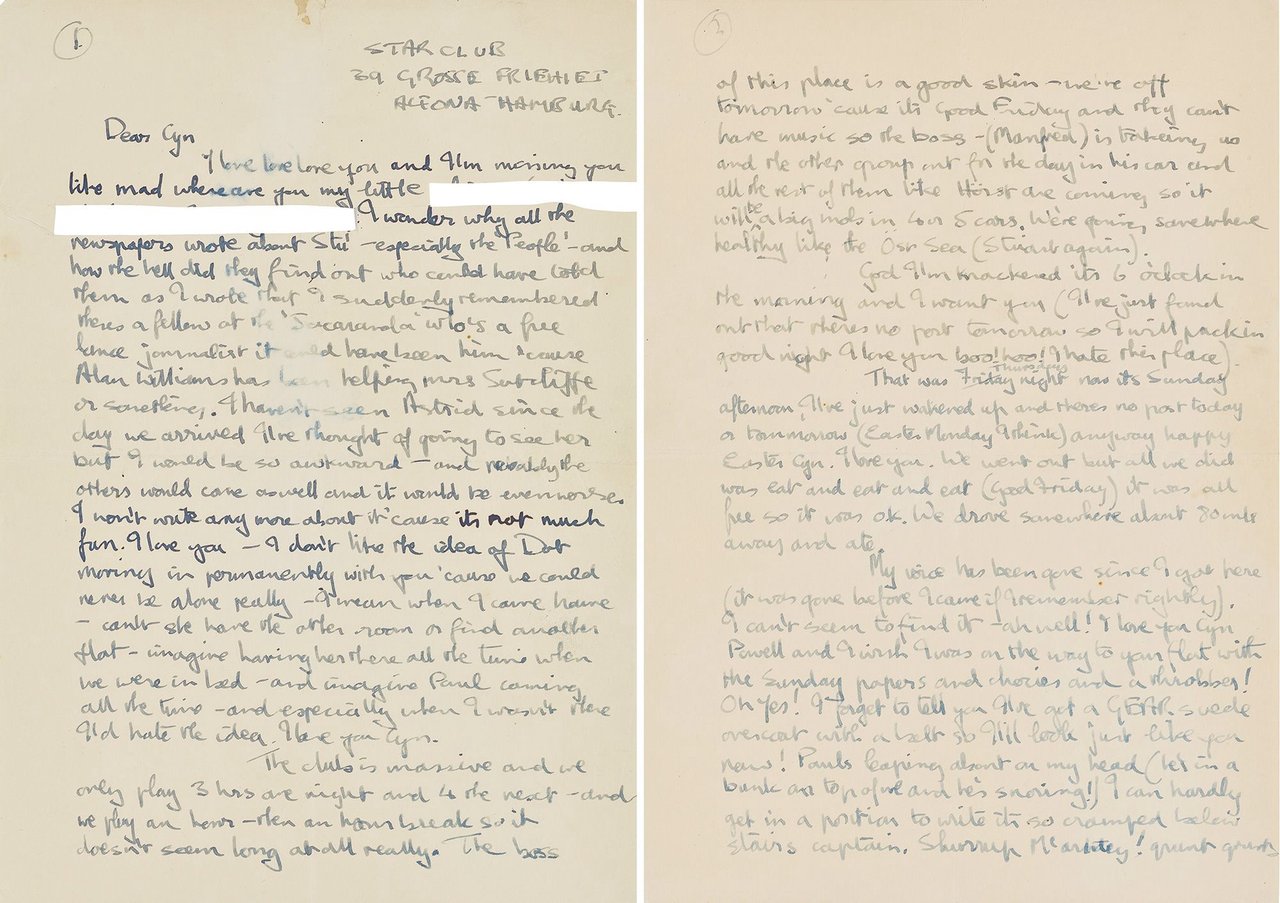 1.
STAR CLUB
39 GROSSE FRIEHIET
ALTONA HAMBURG.
Dear Cyn
I love love love you and I'm missing you
like mad where are you my little
I wonder why all the
newspapers wrote about Stu - especially the 'People' - and
how the hell did they find out who could have told
them as I wrote that I suddenly remembered
theres a fellow at the 'Jacaranda' who's a free
lance journalist it could have been him 'cause
Alan Williams has been helping mrs Sutcliffe
or something. I haven't seen Astrid since the
day we arrived I've thought of going to see her
but I would be so awkward - and probably the
others would come aswell and it would be even worse.
I won't write any more about it 'cause its not much
fun. I love you - I don't like the idea of Dot
moving in permanently with you 'cause we could
never be alone really - I mean when I come home
- can't she have the other room or find another
flat - imagine having her there all the time when
we were in bed - and imagine Paul coming
all the time - and especially when I wasn't there
I'd hate the idea. I love you Cyn.
The club is massive and we
only play 3 hrs one night and 4 the next - and
we play an hour - then an hour break so it
doesn't seem long at all really. The boss
2
of this place is a good skin - we're off
tomorrow 'cause its Good Friday and they can't
have music so the boss - (Manfred) is taking us
and the other group out for the day in his car and
all the rest of them like Horst are coming so it
will be a big mob in 4 or 5 cars. We're going somewhere
healthy like the Osr Sea (Stuart again).
God I'm knackered its 6 o'clock in
the morning and I want you (I've just found
out that theres no post tomorrow so I will pack in
good night I love you boo! hoo! I hate this place)
That was Friday Thursdays night now its Sunday
afternoon, I've just wakened up and theres no post today
or tommorrow (Easter Monday I think) anyway happy
Easter Cyn. I love you. We went out but all we did
was eat and eat and eat (Good Friday) it was all
free so it was o.k. We drove somewhere about 80 mls
away and ate.
My voice has been gone since I got here
(it was gone before I came if I remember rightly).
I can't seem to find it - ah well! I love you Cyn
Powell and I wish I was on the way to your flat with
the Sunday papers and chocies and a throbber!
Oh Yes! I forgot to tell you I've got a GEAR suede
overcoat with a belt so I'll look just like you
now! Pauls leaping about on my head (he's in a
bunk on top of me and he's snoring!) I can hardly
get in a position to write its so cramped below
stairs captain. Shurrup Mcartney! grunt grunt